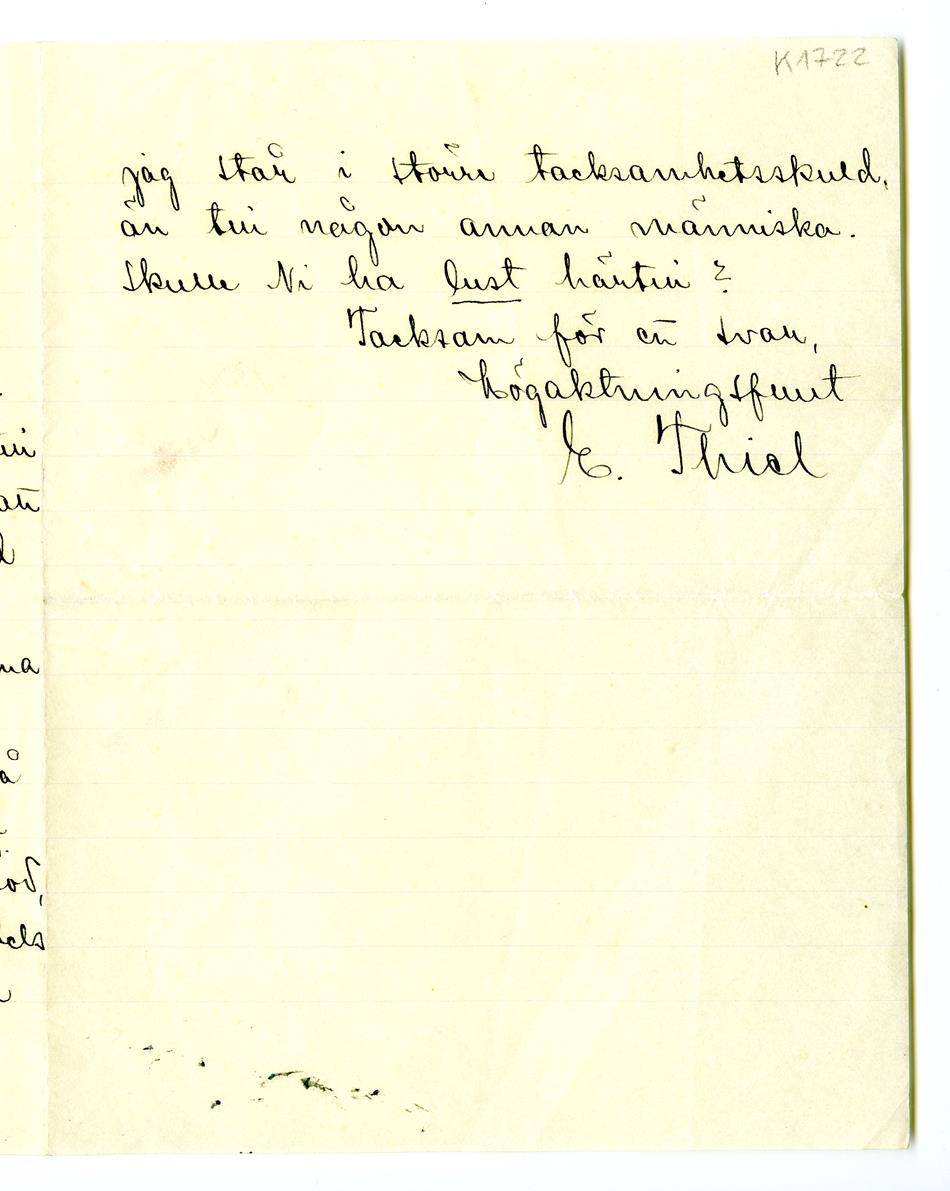 K1722
jag står i större tacksamhetsskuld,
än till någon annan människa.
Skulle Ni ha lust härtill?
Tacksam för ett svar,
högaktningsfullt
E. Thiel
till
att
na
å
öd,
els